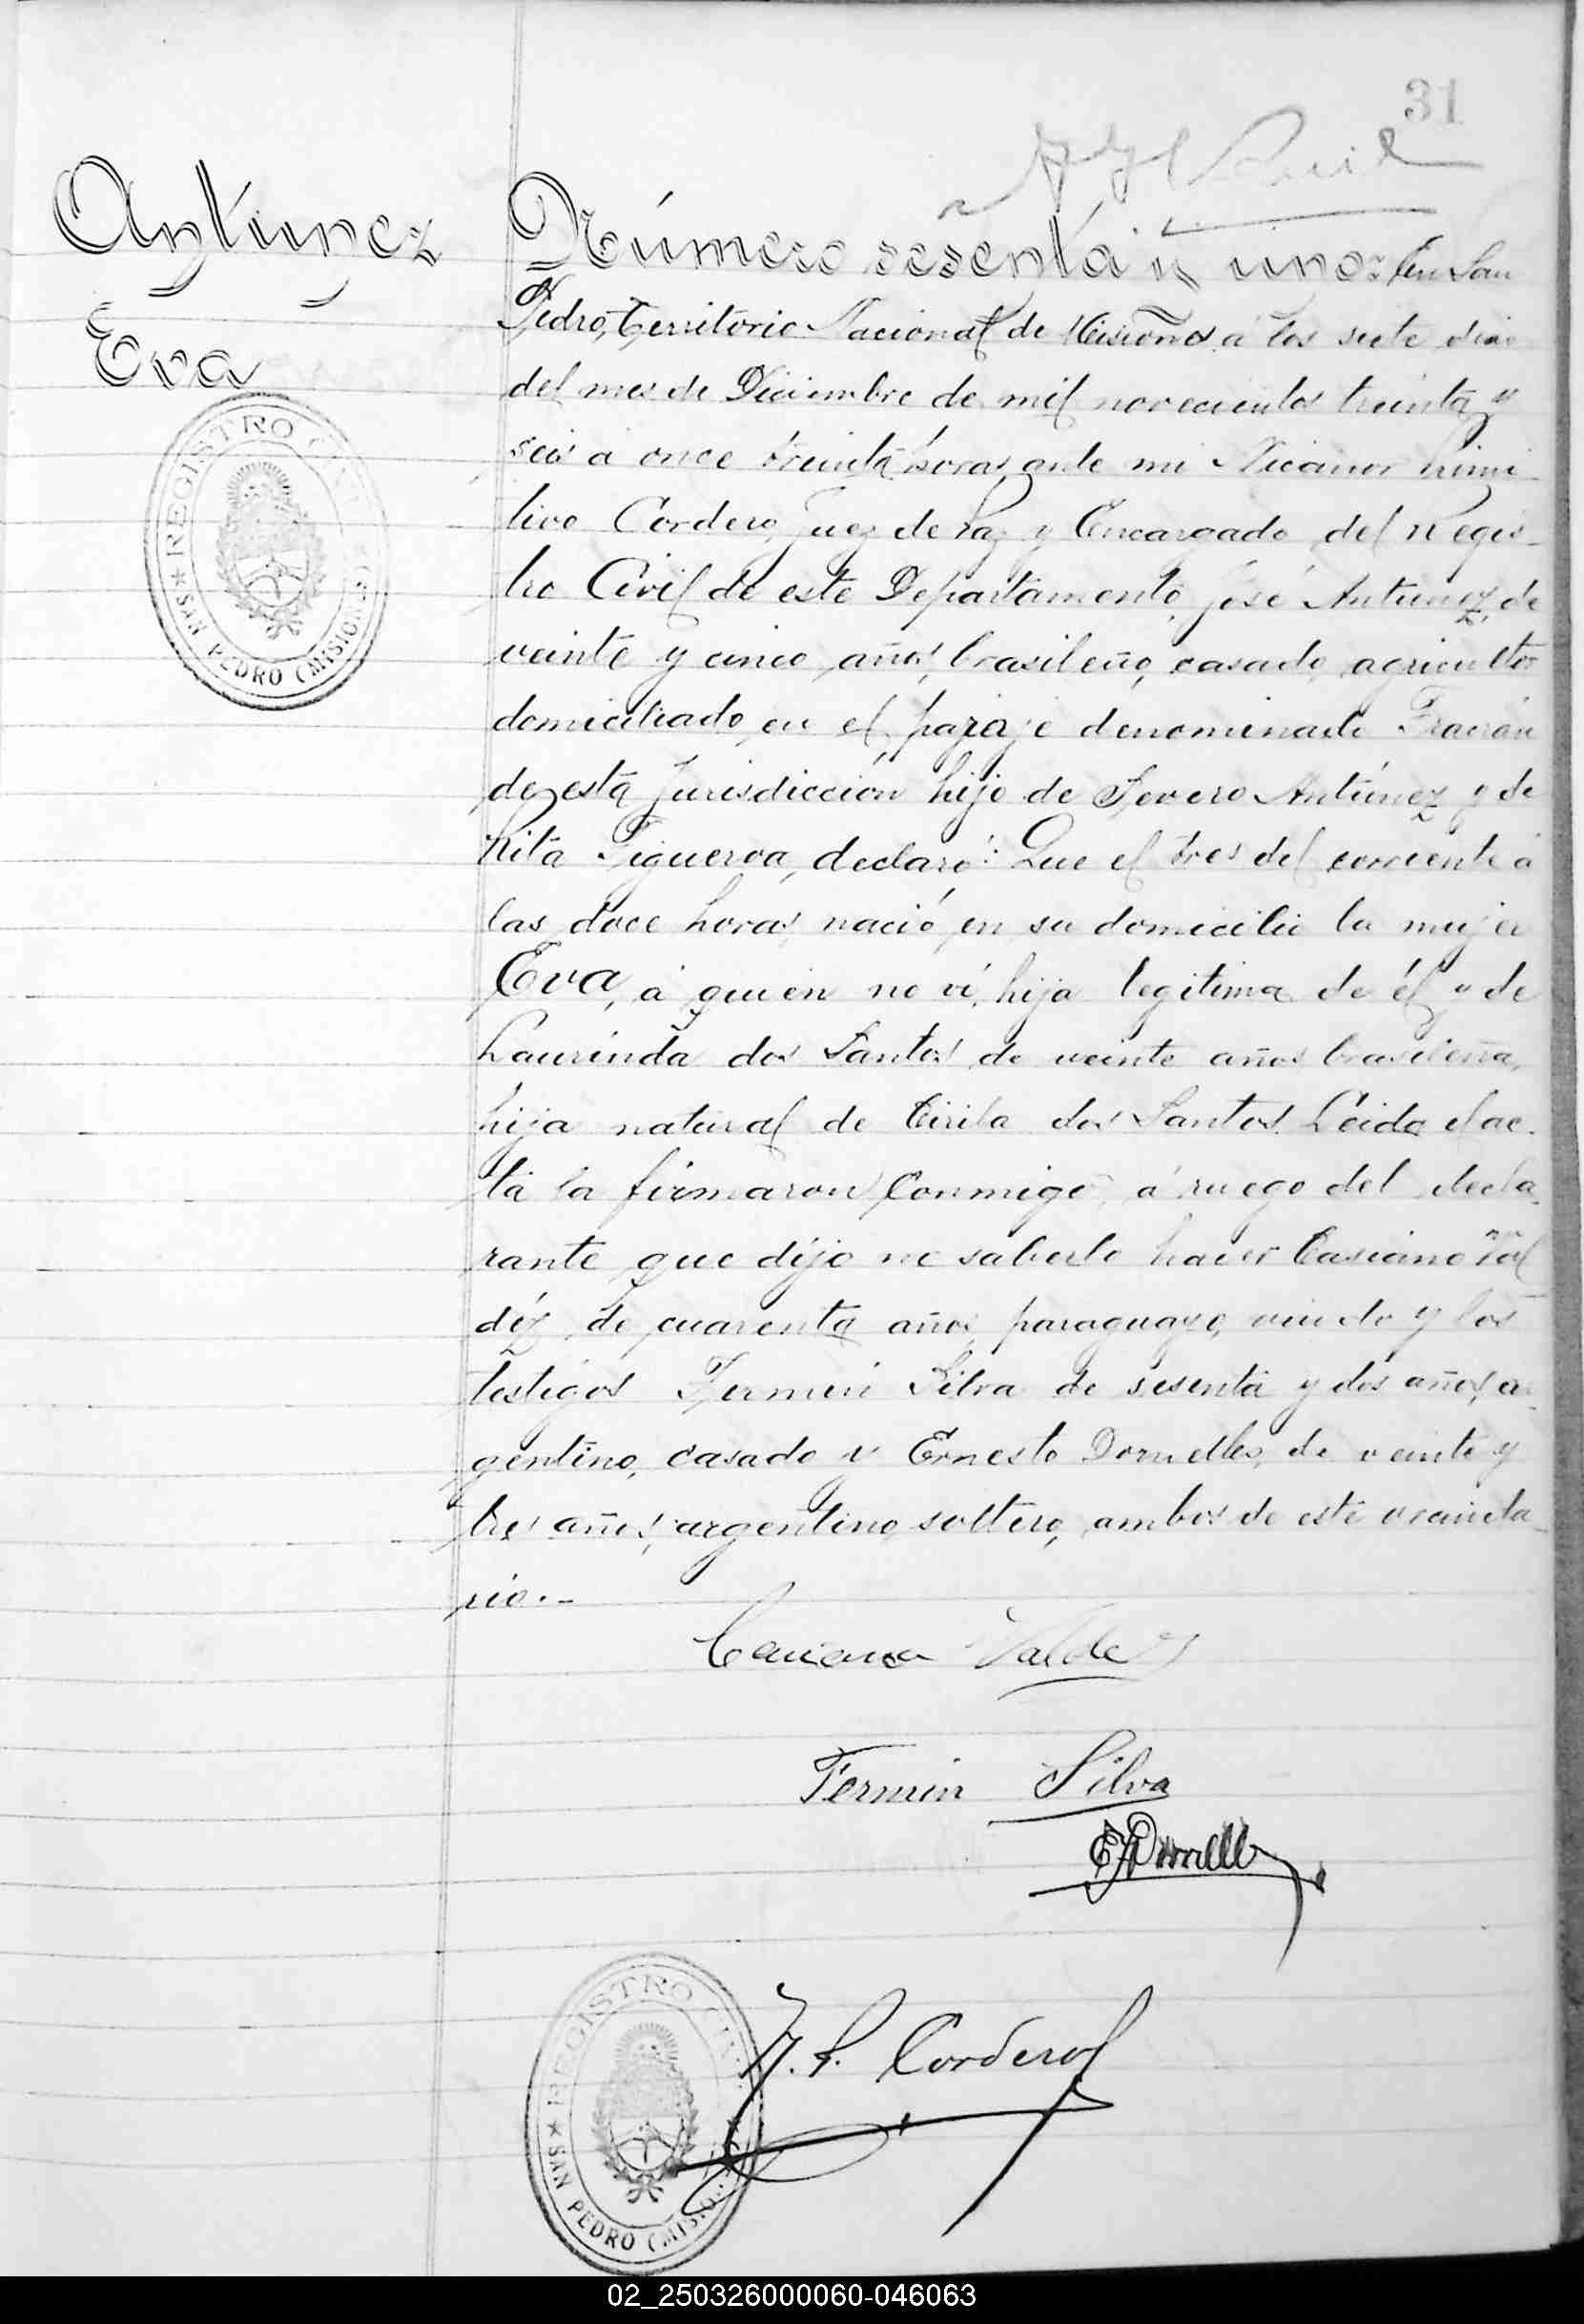 31
Antunez
Eva
REGISTRO CIVIL
SAN PEDRO (MISIONES)
Número sesenta y uno: En San
Pedro, Territorio Nacional de Misiones á los siete días
del mes de Diciembre de mil novecientos treinta y
seis á once treinta horas, ante mi Nicanor Primi-
tivo Cordero, Juez de Paz y Encargado del Regis-
tro Civil de este Departamento, José Antunez, de
veinte y cinco años, brasileño, casado, agricultor
domiciliado en el paraje denominado Fracrán
de esta Jurisdicción hijo de Severo Antúnez y de
Rita Figueroa, declaró: Que el tres del corriente á
las doce horas, nació en su domicilio la mujer
Eva, á quien no ví, hija legitima de él y de
Laurinda dos Santos, de veinte años brasileña,
hija natural de Cirila dos Santos. Leida el ac-
ta la firmaron Conmigo, á ruego del decla-
rante que dijo no saberlo hacer Casiano Val
déz, de cuarenta años, paraguayo, viudo y los
testigos Fermin Silva de sesenta y dos años, ar-
gentino, casado y Ernesto Dornelles, de veinte y
tres años, argentino, soltero, ambos de este vecinda-
rio.-
Casiano Valdez
Fermin Silva
E. Dornelles
REGISTRO CIVIL
SAN PEDRO (MISIONES)
N. P. Cordero
02_250326000060-046063